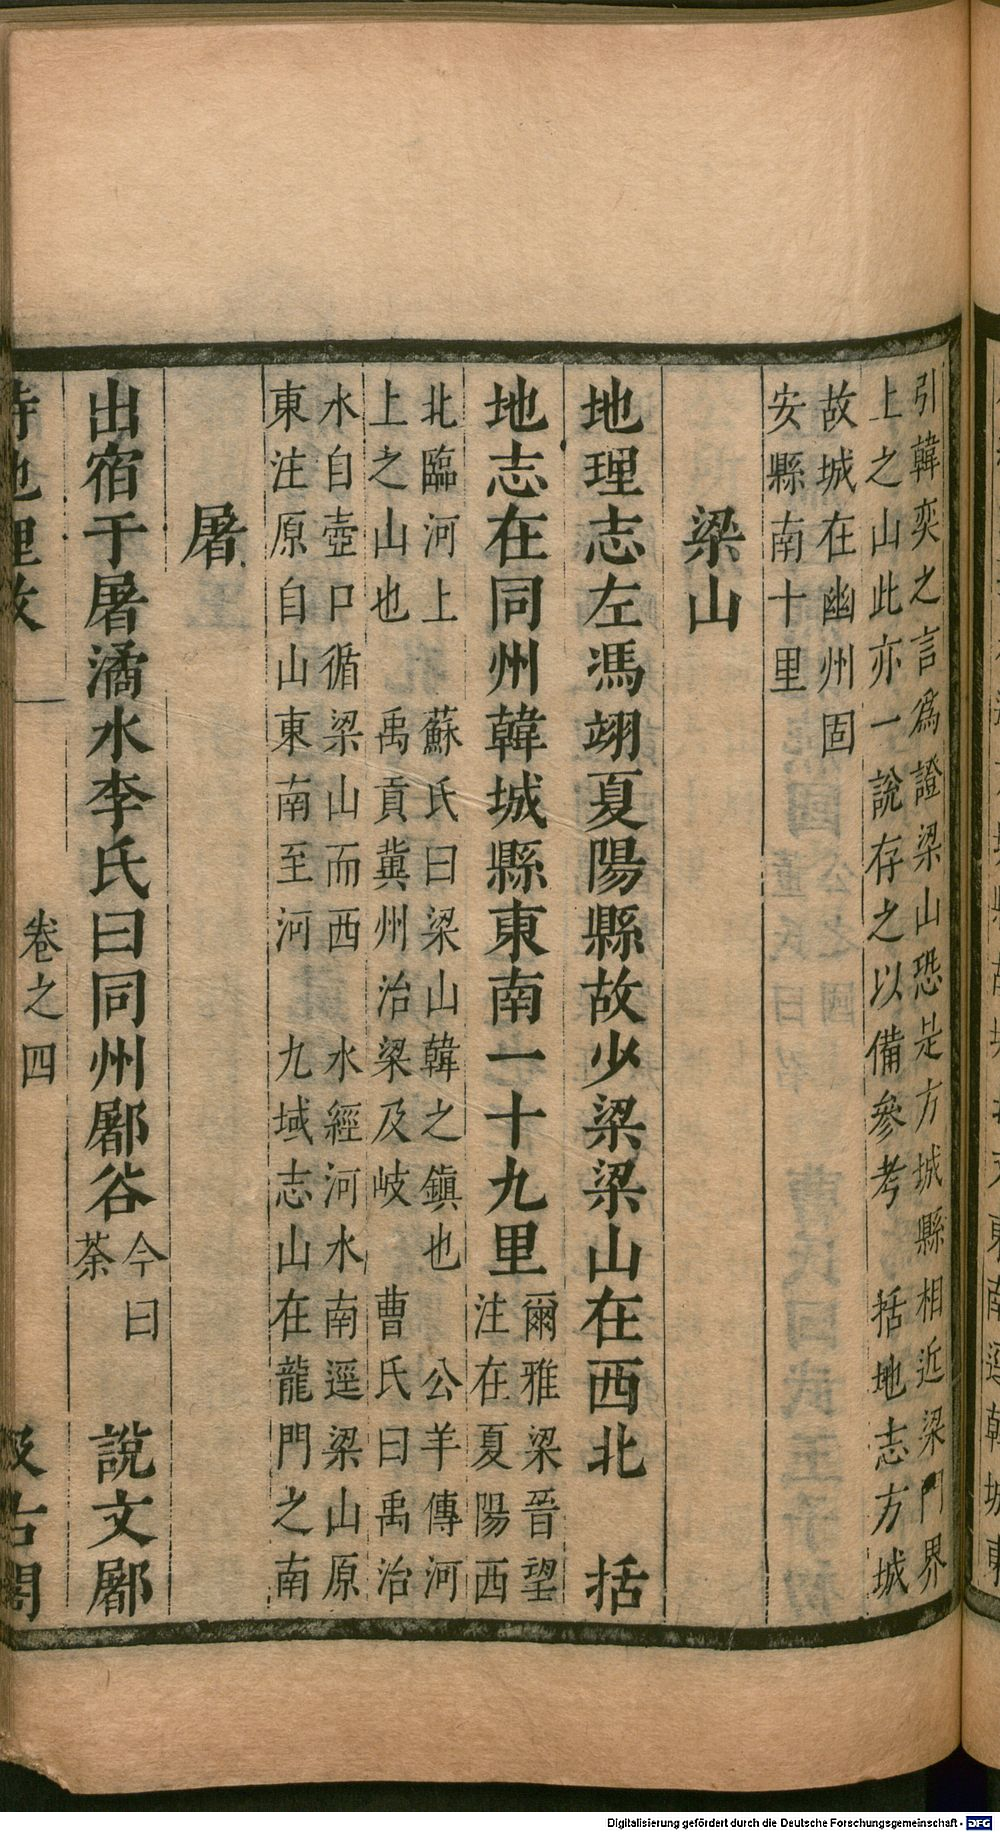 引韓奕之言爲證梁山恐是方城縣相近梁門界
上之山此亦一說存之以備參考 括地志方城
故城在幽州固
安縣南十里
梁山
地理志左馮翊夏陽縣故少梁梁山在西北 括
地志在同州韓城縣東南一十九里
爾雅梁晉望
注在夏陽西
北臨河上 蘇氏曰梁山韓之鎮也 公羊傳河
上之山也 禹貢冀州治梁及岐 曹氏曰禹治
水自壺口循梁山而西 水經河水南逕梁山原
東注原自山東南至河 九域志山在龍門之南
屠
出宿于屠潏水李氏曰同州鄜谷
今曰
荼
說文鄜
詩地理攷 卷之四 汲古閣
Digitalisierung gefördert durch die Deutsche Forschungsgemeinschaft - DFG